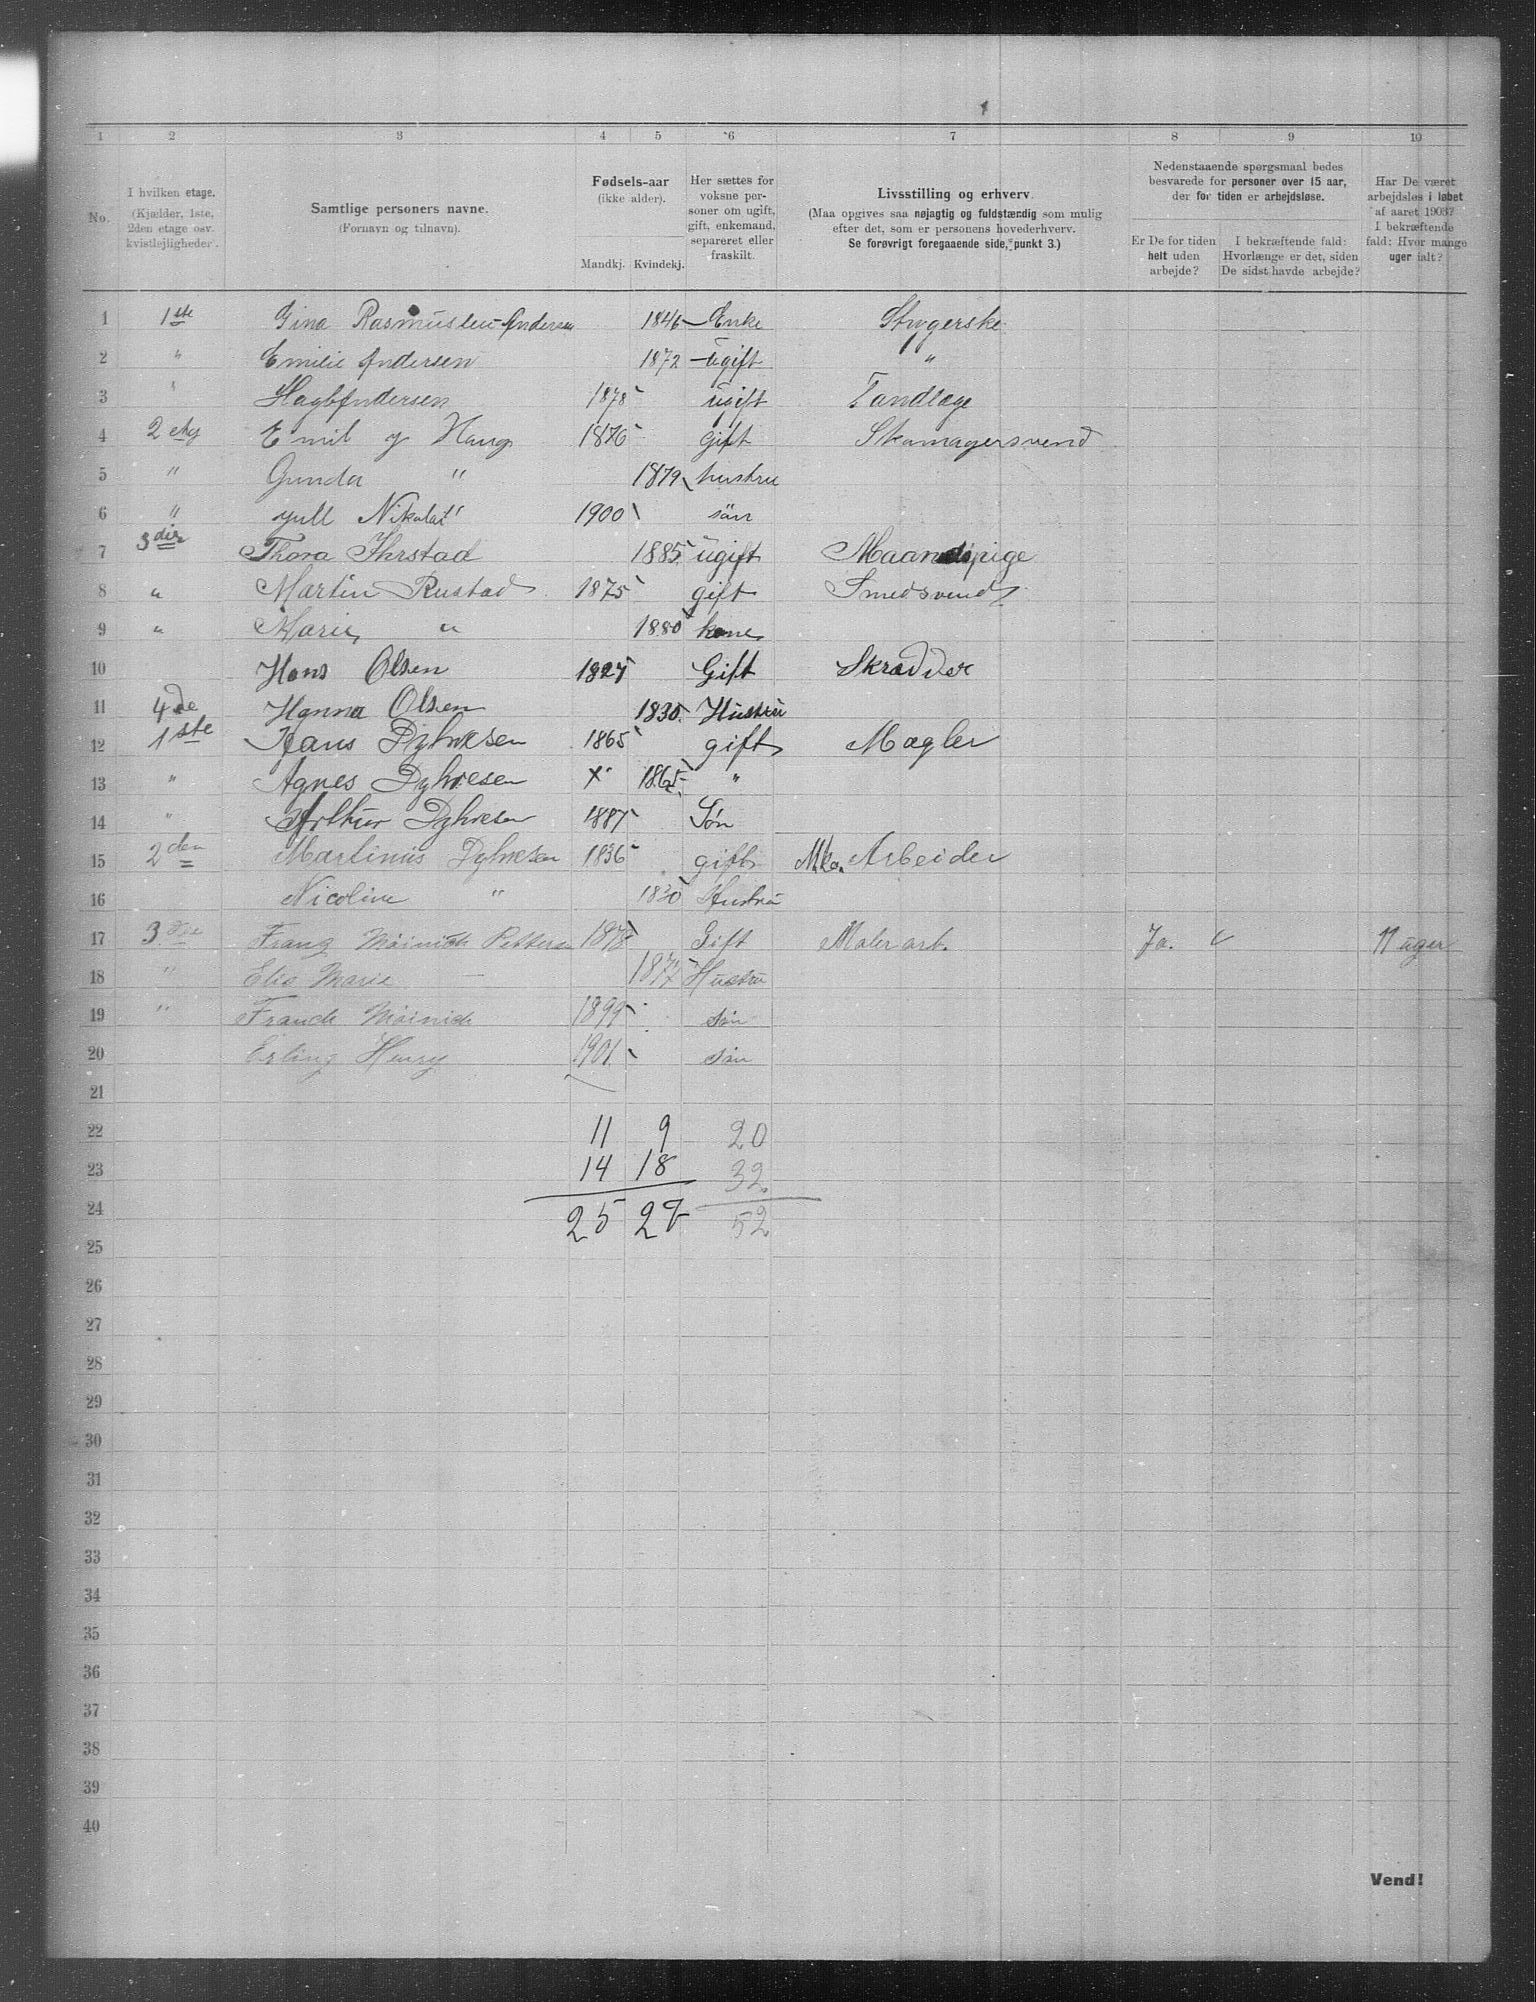 1 2 3 4 5 6 7 8 9 10
No. I hvilken etage. (Kjælder, 1ste, 2den etage osv. kvistlejligheder). Samtlige personers navne. (Fornavn og tilnavn). Fødsels-aar (ikke alder). Mandkj. Kvindekj. Her sættes for voksne personer om ugift, gift, enkemand, separeret eller fraskilt. Livsstilling og erhverv. (Maa opgives saa nøjagtig og fuldstændig som mulig efter det, som er personens hovederhverv. Se forøvrigt foregaaende side, punkt 3.) Nedenstaaende spørgsmaal bedes besvarede for personer over 15 aar, der for tiden er arbejdsløse. Er De for tiden helt uden arbejde? I bekræftende fald: Hvorlænge er det, siden De sidst havde arbejde? Har De været arbejdsløs i løbet af aaret 1903? I bekræftende fald: Hvor mange uger ialt?
1 1ste Gina Rasmussen Andersen 1846 Enke Strygerske
2 " Emilie Andersen 1872 Ugift "
3 " Andersen 1878 ugift Tandlæge
4 2 etg Emil Haug 1876 gift Skomagersvend
5 " Gunda " 1879 hustru
6 " Nikolai 1900 sön
7 3die Thora 1885 ugift Maanedspige
8 " Martin Rustad 1875 gift Smedsvend
9 " Marie " 1880 kone
10 Hans Olsen 1827 Gift Skrædder
11 4de Hanna Olsen 1830 Hustru
12 1ste Hans Dyhresen 1865 gift Mægler
13 " Agnes Dyhresen X 1865 "
14 " Arthur Dyhresen 1887 Søn
15 2den Martinius Dyhresen 1836 gift Arbeider
16 Nicoline " 1830 Hustru
17 3die Frang Möinich 1878 Gift Malerarb. Ja. 11 uger
18 " Elis Marie — 1877 Hustru
19 " Franck Möinich 1899 sön
20 Erling Henry 1901 sön
21
22 11 9 20
23 14 18 32
24 25 27 52
25
26
27
28
29
30
31
32
33
34
35
36
37
38
39
40
Vend!